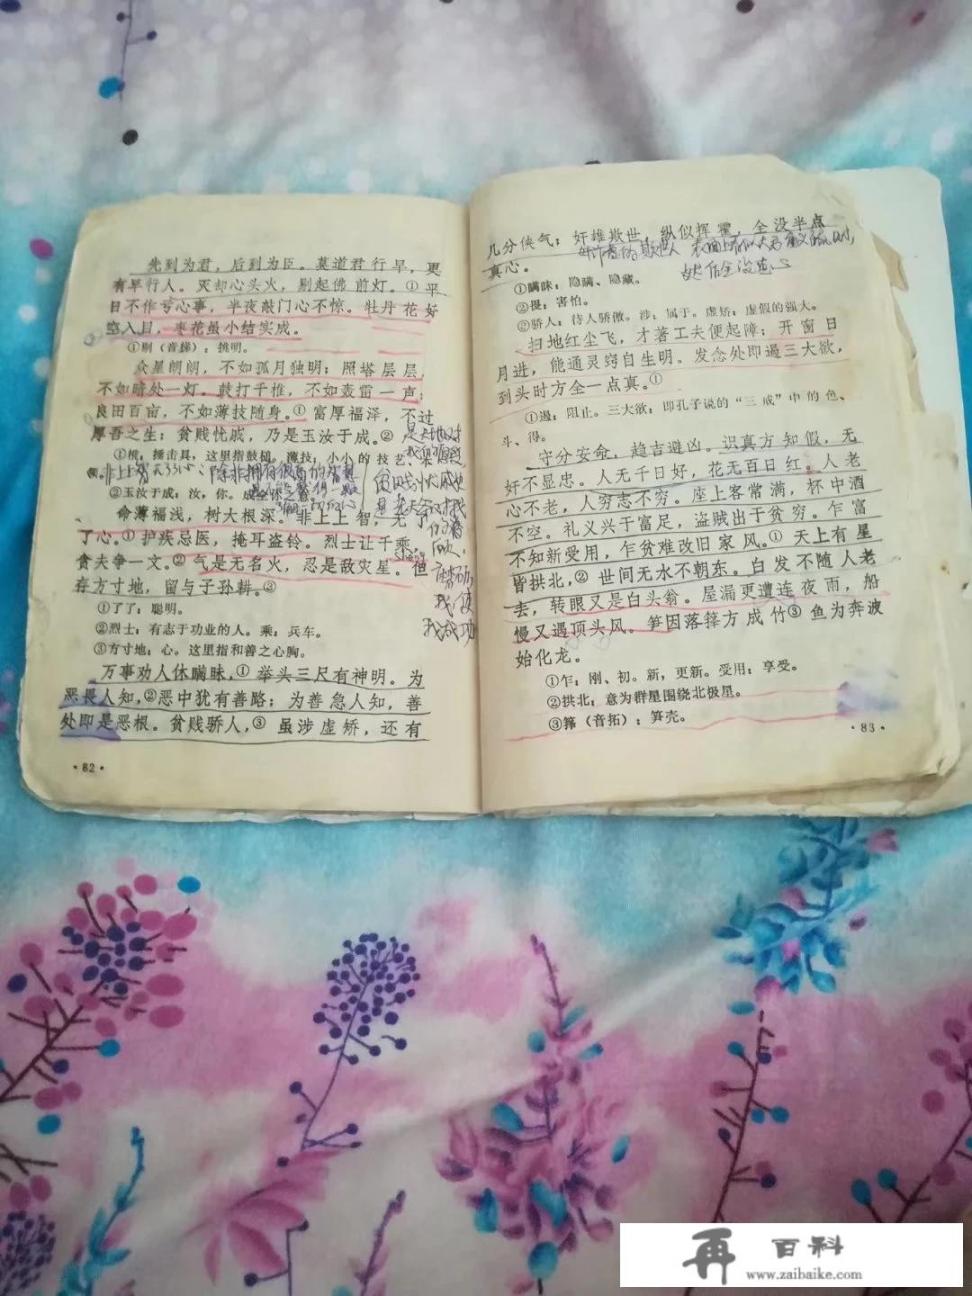 先到为君，后到为臣。莫道君行早，更
有早行人。灭却心头火，剔起佛前灯。①平
日不作亏心事，半夜敲门心不惊。牡丹花好
空入目，枣花虽小结实成。
①剔（音梯）：挑明。
众星朗朗，不如孤月独明；照塔层层，
不如暗处一灯。鼓打千椎，不如轰雷一声；
良田百亩，不如薄技随身。①富厚福泽，不过
厚吾之生；贫贱忧戚，乃是玉汝于成。②
①椎：捶击具，这里指鼓槌。薄技：小小的技艺、本
领。
②玉汝于成：汝，你。成全你之意。
命薄福浅，树大根深。非上上智，无了
了心。①护疾忌医，掩耳盗铃。烈士让千乘，
贪夫争一文。②气是无名火，忍是敌灾星。但
存方寸地，留与子孙耕。③
①了了：聪明。
②烈士：有志于功业的人。乘：兵车。
③方寸地：心。这里指和善之心胸。
万事劝人休瞒昧，①举头三尺有神明。为
恶畏人知，②恶中犹有善路；为善急人知，善
处即是恶根。贫贱骄人，③虽涉虚矫，还有
·82·
几分侠气；奸雄欺世，纵似挥霍，全没半点
真心。
①瞒昧：隐瞒、隐藏。
②畏：害怕。
③骄人：待人骄傲。涉：属于。虚矫：虚假的强大。
扫地红尘飞，才著工夫便起障；开窗日
月进，能通灵窍自生明。发念处即遏三大欲，
到头时方全一点真。①
①遏：阻止。三大欲：即孔子说的“三戒”中的色、
斗、得。
守分安命，趋吉避凶。识真方知假，无
奸不显忠。人无千日好，花无百日红。人老
心不老，人穷志不穷。座上客常满，杯中酒
不空。礼义兴于富足，盗贼出于贫穷。乍富
不知新受用，乍贫难改旧家风。①天上有星
皆拱北，②世间无水不朝东。白发不随人老
去，转眼又是白头翁。屋漏更遭连夜雨，船
慢又遇顶头风。笋因落箨方成竹③鱼为奔波
始化龙。
①乍：刚、初。新，更新。受用：享受。
②拱北：意为群星围绕北极星。
③箨（音拓）：笋壳。
·83·
再 百科
www.zaibaike.com